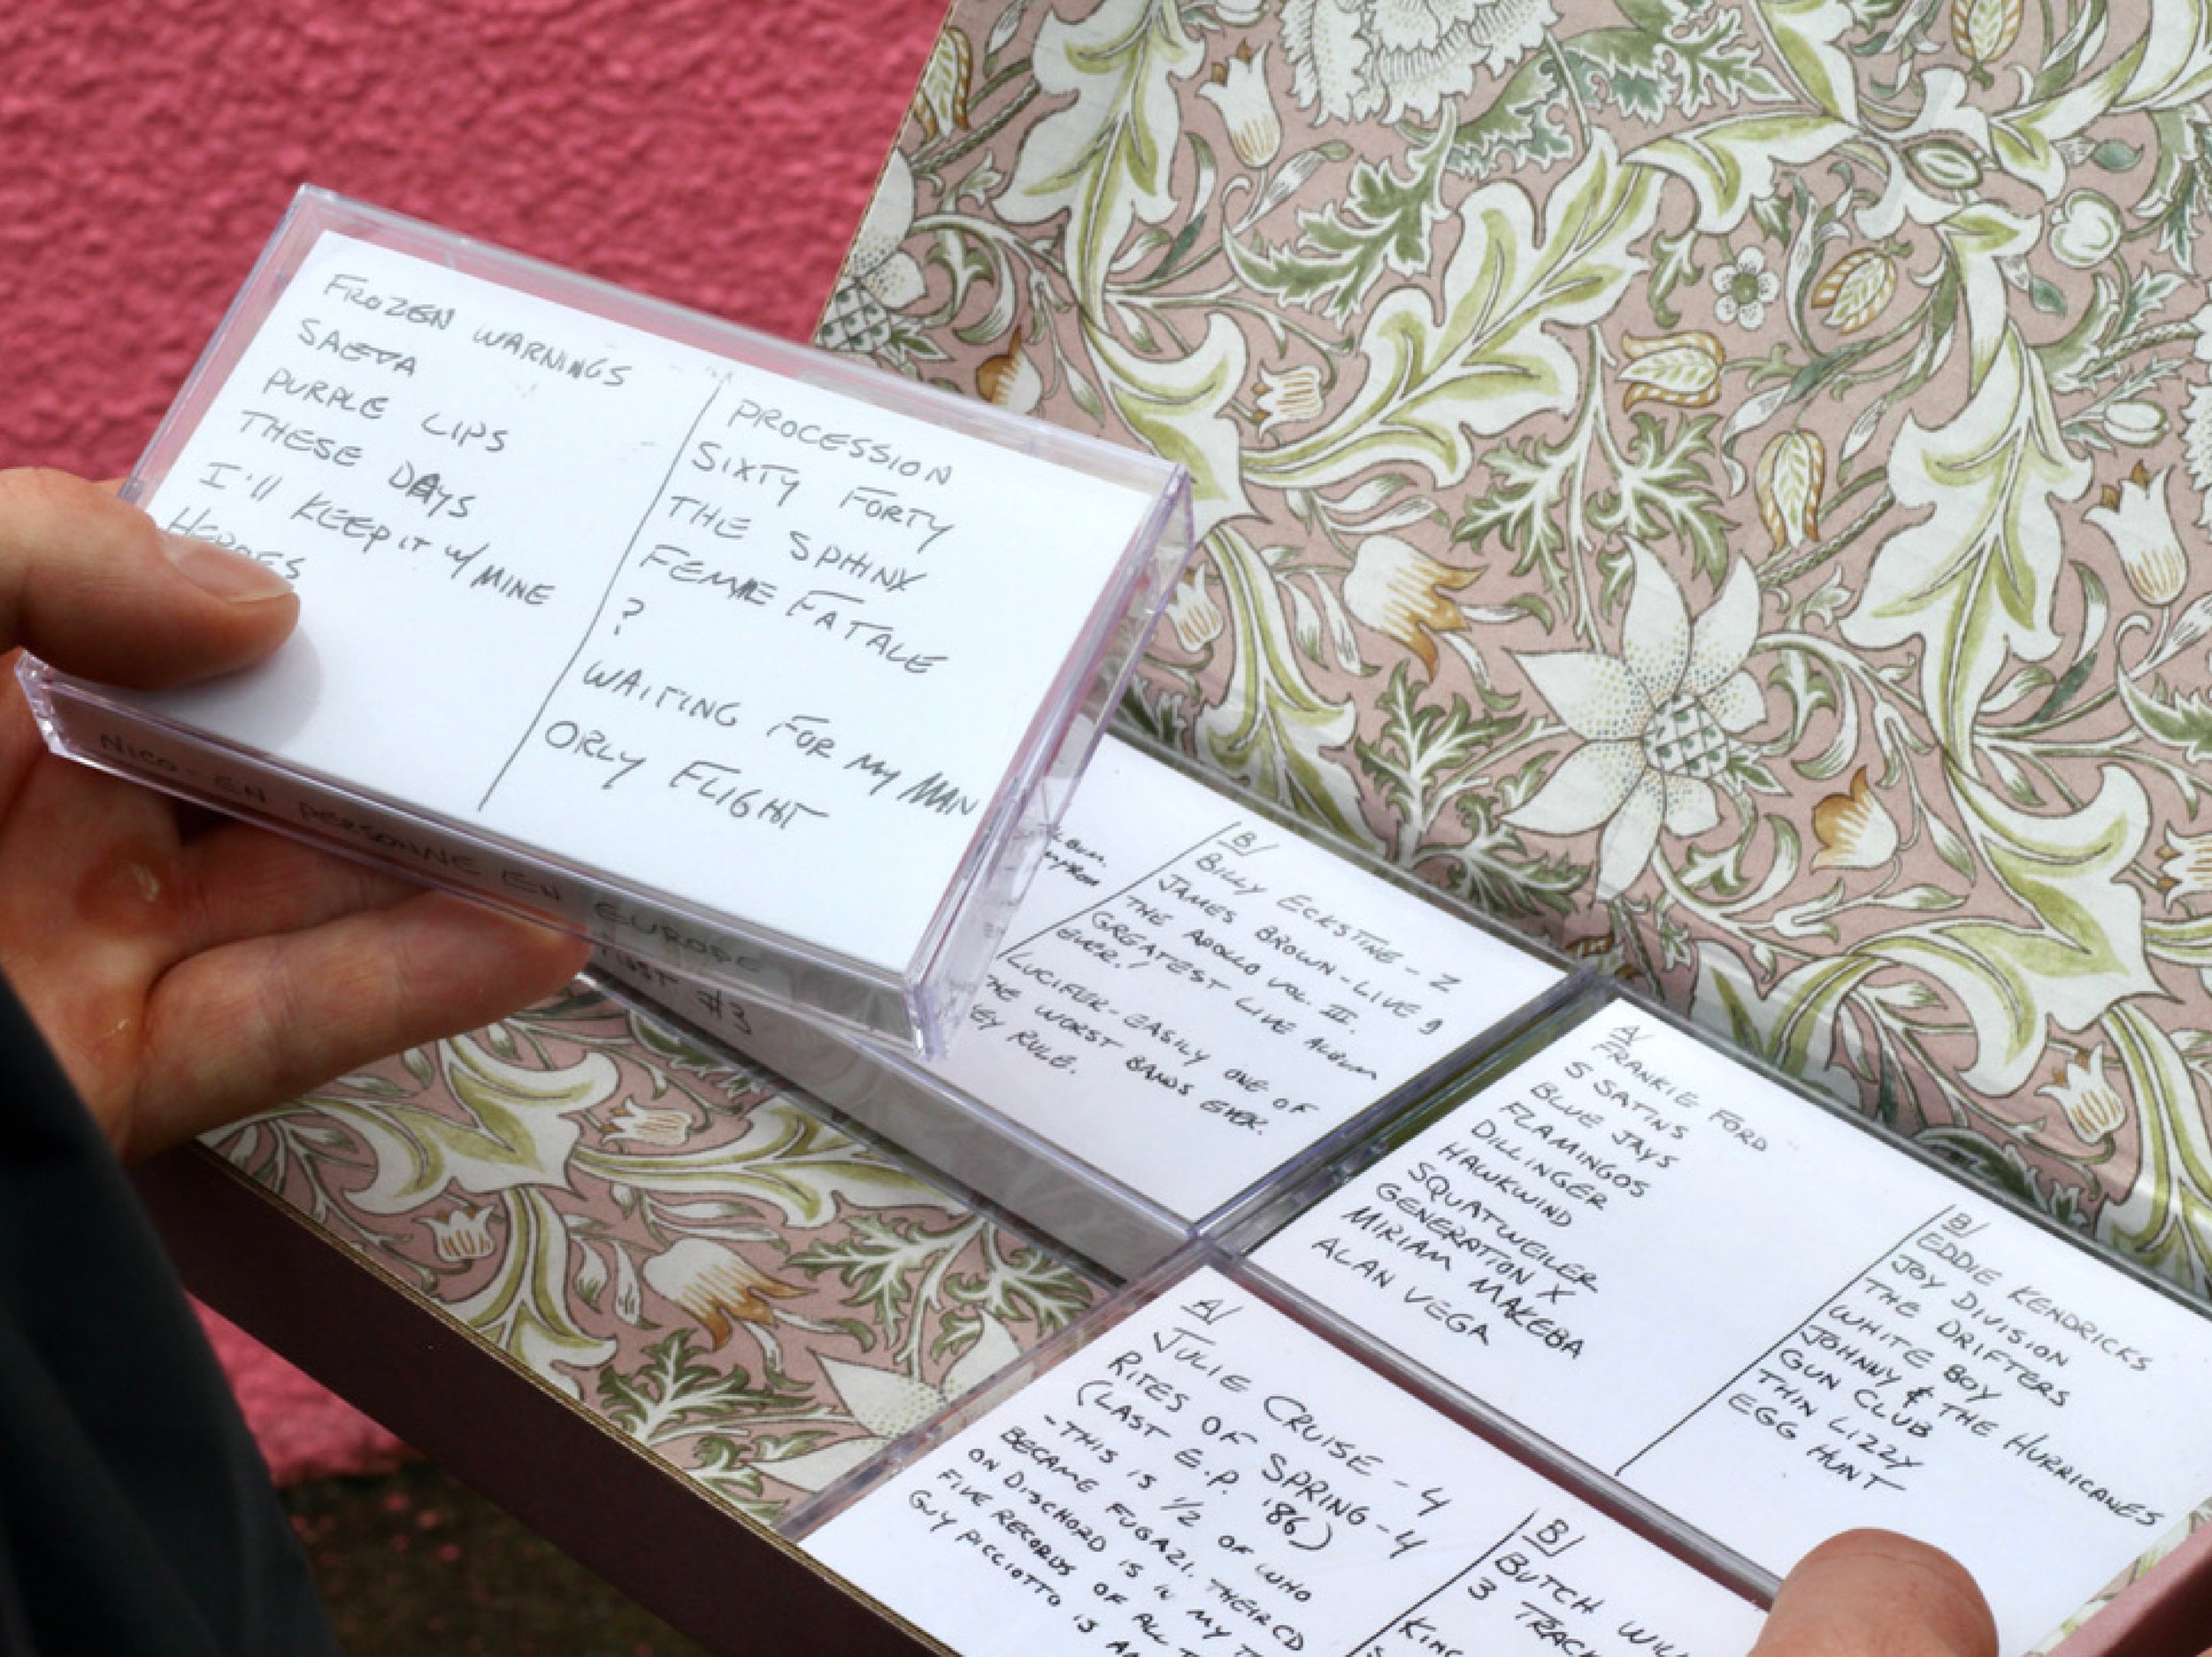 FROZEN WARNINGS
SAEVA
PURPLE LIPS
THESE DAYS
I'll KEEP IT w/ MINE
HEROES
PROCESSION
SIXTY FORTY
THE SPHINX
FEMME FATALE
?
WAITING FOR MY MAN
ORLY FLIGHT
NICO - EN PERSONNE EN EUROPE
#3
B/
BILLY ECKSTINE - 2
JAMES BROWN - LIVE @
THE APOLLO VOL. III.
GREATEST LIVE ALBUM
EVER!
LUCIFER - EASILY ONE OF
THE WORST BANDS EVER.
THEY RULE.
A/
FRANKIE FORD
5 SATINS
BLUE JAYS
FLAMINGOS
DILLINGER
HAWKWIND
SQUATWEILER
GENERATION X
MIRIAM MAKEBA
ALAN VEGA
B/
EDDIE KENDRICKS
JOY DIVISION
THE DRIFTERS
WHITE BOY
JOHNNY & THE HURRICANES
GUN CLUB
THIN LIZZY
EGG HUNT
A/
JULIE CRUISE - 4
RITES OF SPRING - 4
(LAST E.P. '86)
- THIS IS 1/2 OF WHO
BECAME FUGAZI. THEIR CD
ON DISCHORD IS IN MY T
FIVE RECORDS OF ALL T
GUY PICCIOTTO IS A
B/
BUTCH WILL
3 TRACK
KING